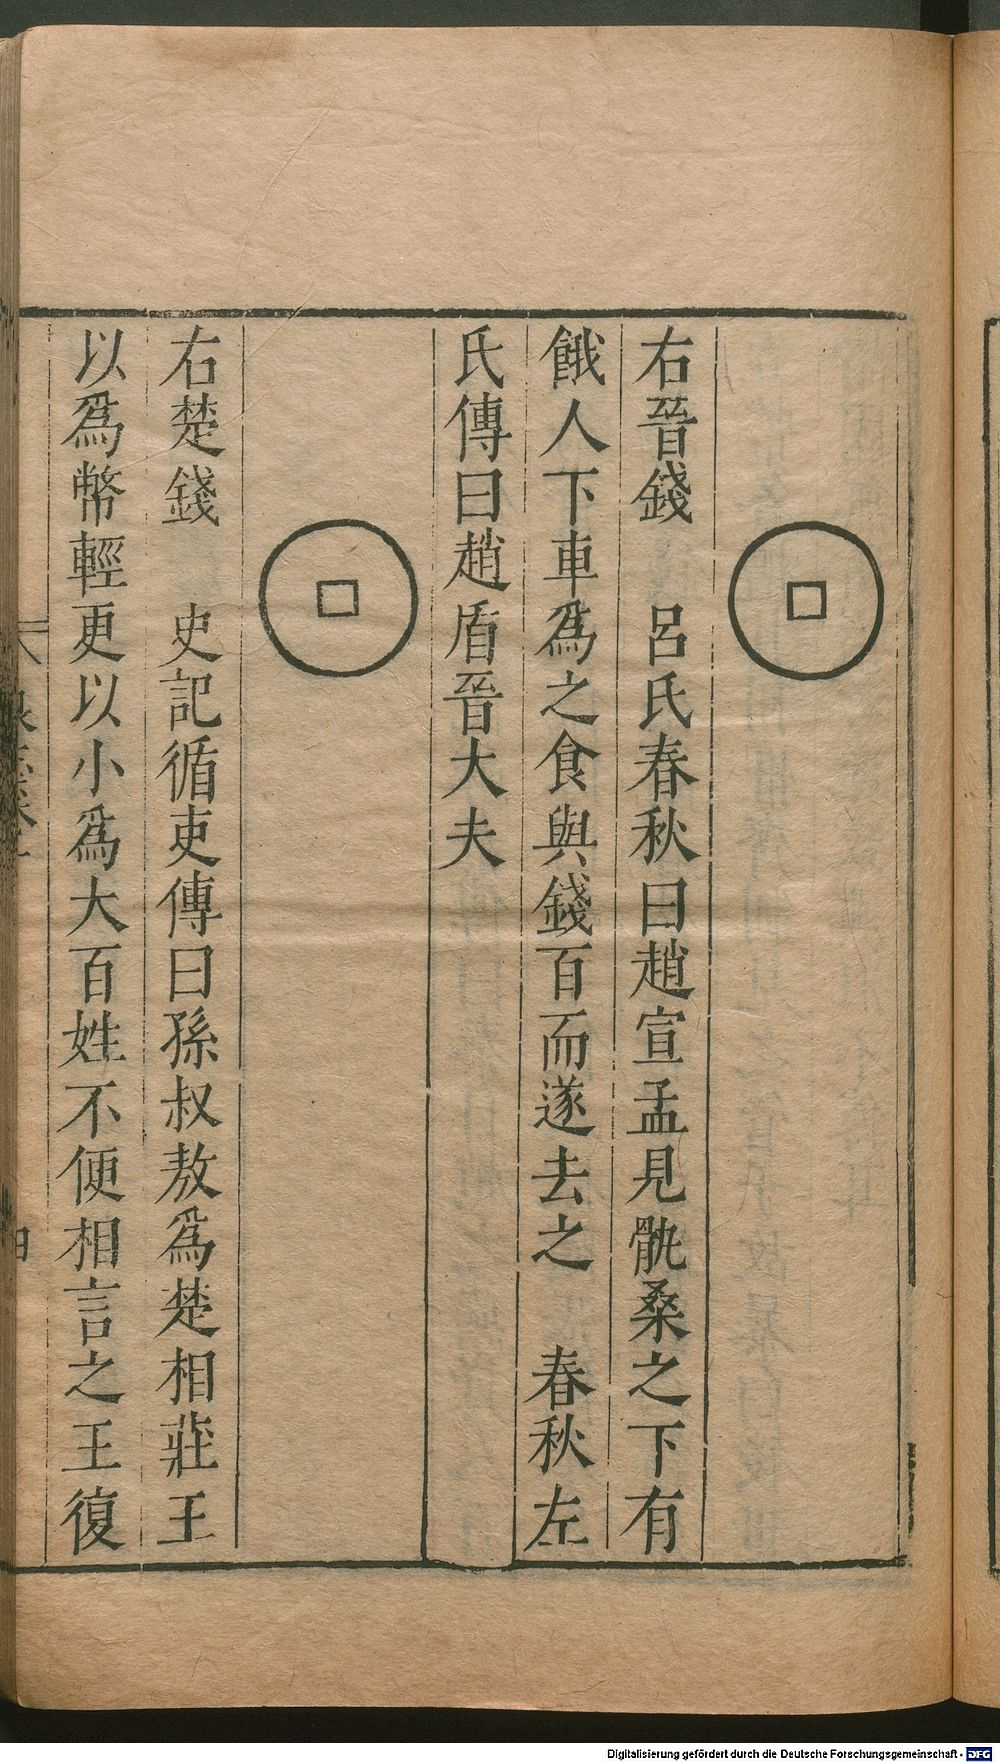 右晉錢　呂氏春秋曰趙宣孟見骩桑之下有
餓人下車爲之食與錢百而遂去之　春秋左
氏傳曰趙盾晉大夫
右楚錢　史記循吏傳曰孫叔敖爲楚相莊王
以爲幣輕更以小爲大百姓不便相言之王復
Digitalisierung gefördert durch die Deutsche Forschungsgemeinschaft - DFG